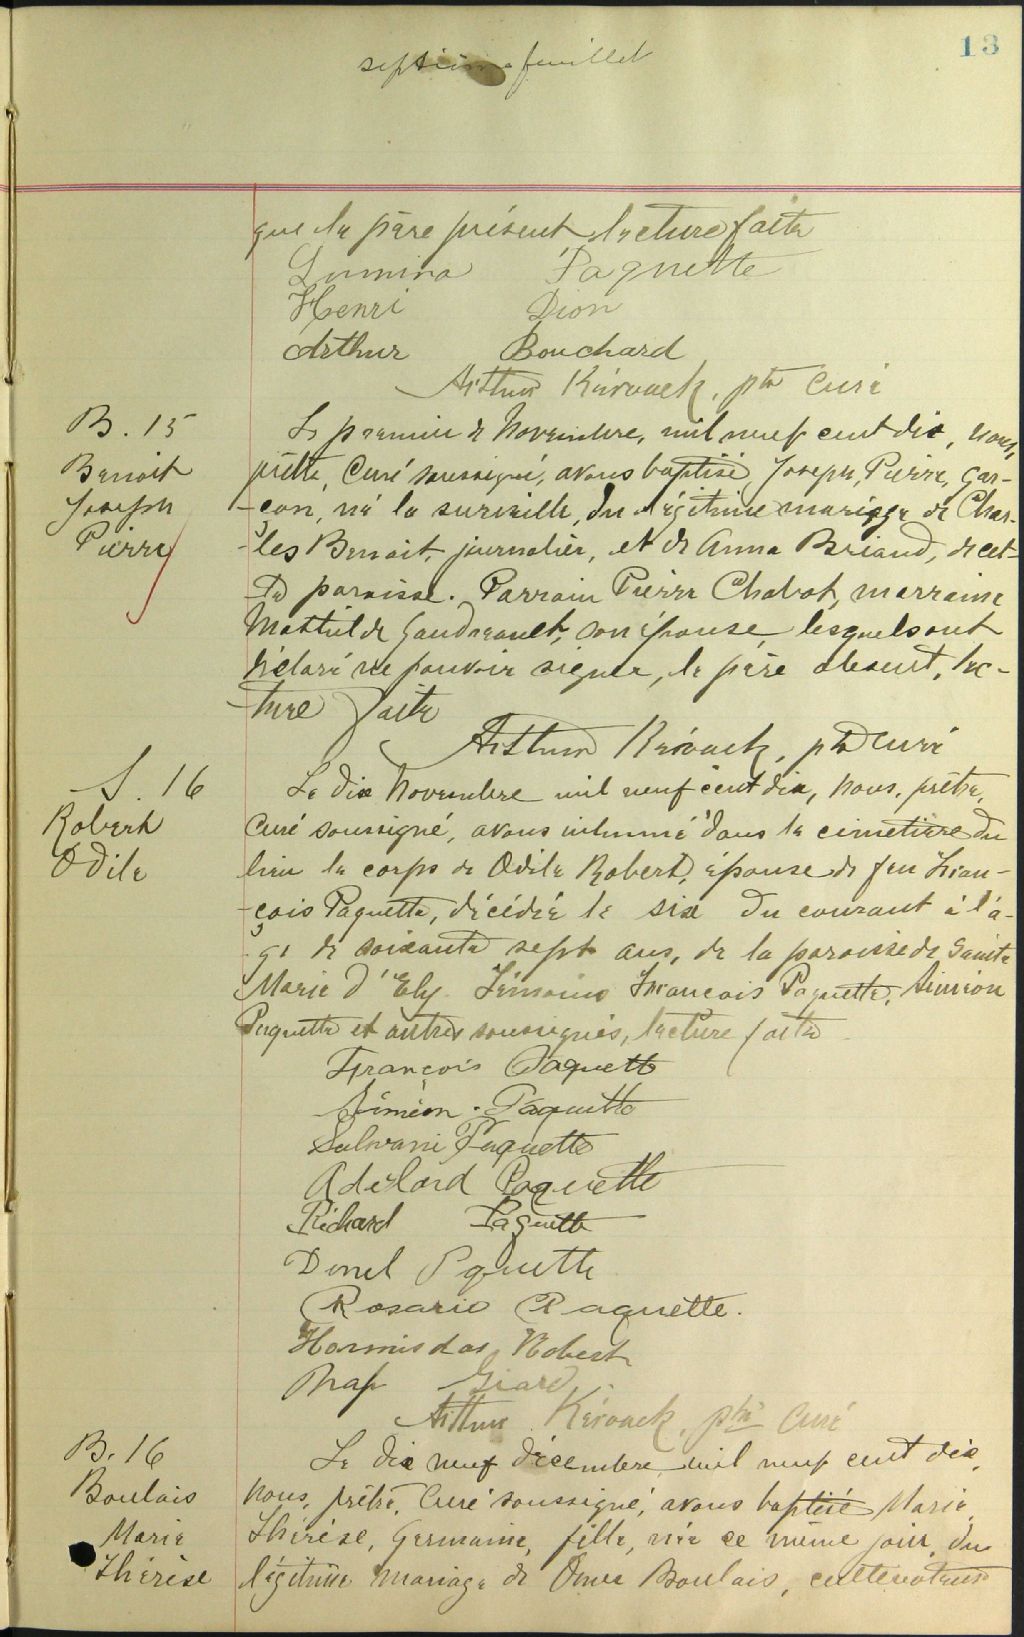 13
septième feuillet
que le père présent lecture faite
Lumina Paquette
Henri Dion
Arthur Bouchard
Arthur Kérouack, ptre Curé
B. 15
Benoit
Joseph
Pierre
Le premier de Novembre, mil neuf cent dix, nous,
prêtre, Curé soussigné, avons baptisé, Joseph, Pierre, gar-
-çon, né la surveille, du légitime mariage de Char-
-les Benoit, journalier, et de Anna Briand, de cet-
-te paroisse. Parrain Pierre Chabot, marraine
Mathilde Gaudreault, son épouse, lesquels ont
déclaré ne pouvoir signer, le père absent, lec-
-ture faite
Arthur Kérouack, ptre Curé
S. 16
Robert
Odile
Le dix Novembre mil neuf cent dix, nous, prêtre,
Curé soussigné, avons inhumé dans le cimetière du
lieu le corps de Odile Robert, épouse de feu Fran-
-çois Paquette, décédée le six du courant à l'â-
ge de soixante sept ans, de la paroisse de Sainte
Marie d'Ely. Témoins François Paquette, Siméon
Paquette et autres soussignés, lecture faite.
François Paquette
Siméon Paquette
Paquette
Adélard Paquette
Richard Paquette
Donel Pquette
Rosario Paquette.
Hormisdas Robert
Nap Giard
Arthur Kérouack, ptre Curé
B. 16
Boulais
Marie
Thérèse
Le dix neuf décembre, mil neuf cent dix,
nous, prêtre, Curé soussigné, avons baptisé Marie,
Thérèse, Germaine, fille, née ce même jour, du
légitime mariage de Omer Boulais, cultivateur